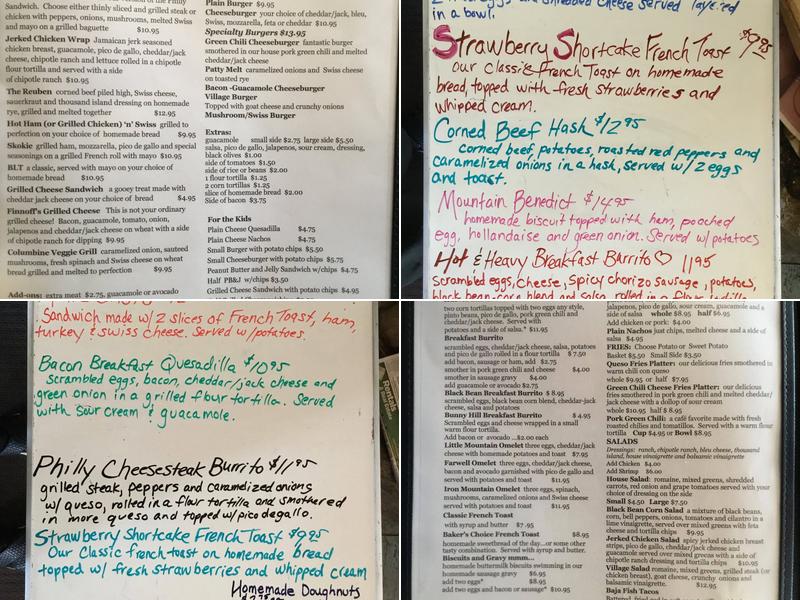 Sandwich. Choose either thinly sliced and grilled steak or
chicken with peppers, onions, mushrooms, melted Swiss
and mayo on a grilled baguette $10.95
Jerked Chicken Wrap Jamaican jerk seasoned
chicken breast, guacamole, pico de gallo, cheddar/jack
cheese, chipotle ranch and lettuce rolled in a chipotle
flour tortilla and served with a side
of chipotle ranch $10.95
The Reuben corned beef piled high, Swiss cheese,
sauerkraut and thousand island dressing on homemade
rye, grilled and melted together $12.95
Hot Ham (or Grilled Chicken) 'n' Swiss grilled to
perfection on your choice of homemade bread $9.95
Skokie grilled ham, mozzarella, pico de gallo and special
seasonings on a grilled French roll with mayo $10.95
BLT a classic, served with mayo on your choice of
homemade bread $10.95
Grilled Cheese Sandwich a gooey treat made with
cheddar jack cheese on your choice of bread $4.95
Finnoff's Grilled Cheese This is not your ordinary
grilled cheese! Bacon, guacamole, tomato, onion,
jalapenos and cheddar/jack cheese on wheat with a side
of chipotle ranch for dipping $9.95
Columbine Veggie Grill caramelized onion, sauteed
mushrooms, fresh spinach and Swiss cheese on wheat
bread grilled and melted to perfection $9.95
Add-ons: extra meat $2.75, guacamole or avocado
Plain Burger $9.95
Cheeseburger your choice of cheddar/jack, bleu,
Swiss, mozzarella, feta or cheddar $10.95
Specialty Burgers $13.95
Green Chili Cheeseburger fantastic burger
smothered in our house pork green chili and melted
cheddar/jack cheese
Patty Melt caramelized onions and Swiss cheese
on toasted rye
Bacon -Guacamole Cheeseburger
Village Burger
Topped with goat cheese and crunchy onions
Mushroom/Swiss Burger
Extras:
guacamole small side $2.75 large side $5.50
salsa, pico de gallo, jalapenos, sour cream, dressing,
black olives $1.00
side of tomatoes $1.50
side of rice or beans $2.00
1 flour tortilla $1.25
2 corn tortillas $1.25
slice of homemade bread $2.00
Side of bacon $3.75
For the Kids
Plain Cheese Quesadilla $4.75
Plain Cheese Nachos $4.75
Small Burger with potato chips $5.50
Small Cheeseburger with potato chips $5.75
Peanut Butter and Jelly Sandwich w/chips $4.75
Half PB&J w/chips $3.50
Grilled Cheese Sandwich with potato chips $4.95
shredded cheese served layered
in a bowl.
Strawberry Shortcake French Toast $9.95
Our Classic French Toast on homemade
bread, topped with fresh strawberries and
whipped cream.
Corned Beef Hash $12.95
corned beef, potatoes, roasted red peppers and
caramelized onions in a hash, served w/2 eggs
and toast.
Mountain Benedict $14.95
homemade biscuit topped with ham, poached
egg, hollandaise and green onion. Served w/potatoes
Hot & Heavy Breakfast Burrito♡ 11.95
Scrambled eggs, cheese, spicy chorizo sausage, potatoes,
black bean-corn blend and salsa rolled in a flour tortilla
Sandwich made w/2 slices of French Toast, ham,
turkey & swiss cheese. Served w/potatoes.
Bacon Breakfast Quesadilla $10.95
Scrambled eggs, bacon, cheddar/jack cheese and
green onion in a grilled flour tortilla. Served
with sour cream & guacamole.
Philly Cheesesteak Burrito $11.95
grilled steak, peppers and caramelized onions
w/ queso, rolled in a flour tortilla and smothered
in more queso and topped w/pico de gallo.
Strawberry Shortcake French Toast $9.95
Our Classic french toast on homemade bread
topped w/ fresh strawberries and whipped cream
Homemade Doughnuts
Rentals
two corn tortillas topped with two eggs any style,
pinto beans, pico de gallo, pork green chili and
cheddar/jack cheese. Served with
potatoes and a side of salsa.* $11.95
Breakfast Burrito
scrambled eggs, cheddar/jack cheese, salsa, potatoes
and pico de gallo rolled in a flour tortilla $7.50
add bacon, sausage or ham, add $2.75
smother in pork green chili and cheese $4.00
smother in sausage gravy $4.00
add guacamole or avocado $2.75
Black Bean Breakfast Burrito $ 8.95
scrambled eggs, black bean corn blend, cheddar-jack
cheese, salsa and potatoes
Bunny Hill Breakfast Burrito $ 4.95
Scrambled eggs and cheese wrapped in a small
warm flour tortilla.
Add bacon or avocado ...$2.00 each
Little Mountain Omelet three eggs, cheddar/jack
cheese with homemade potatoes and toast $7.95
Farwell Omelet three eggs, cheddar/jack cheese,
bacon and avocado garnished with pico de gallo and
served with potatoes and toast $11.95
Iron Mountain Omelet three eggs, spinach,
mushrooms, caramelized onions and Swiss cheese
served with potatoes and toast $11.95
Classic French Toast
with syrup and butter $7.95
Baker's Choice French Toast $8.95
homemade sweetbread of the day...or some other
tasty combination. Served with syrup and butter.
Biscuits and Gravy mmm...
homemade buttermilk biscuits swimming in our
homemade sausage gravy $6.95
add two eggs* $8.95
add two eggs and bacon or sausage* $10.95
jalapenos, pico de gallo, sour cream, guacamole and a
side of salsa whole $8.95 half $6.95
Add chicken or pork: $4.00
Plain Nachos just chips, melted cheese and a side of
salsa. $4.95
FRIES: Choose Potato or Sweet Potato
Basket $5.50 Small Side $3.50
Queso Fries Platter: our delicious fries smothered in
warm chili con queso
whole $9.95 or half $7.95
Green Chili Cheese Fries Platter: our delicious
fries smothered in pork green chili and melted cheddar/
jack cheese with a dollop of sour cream
whole $10.95 half $ 8.95
Pork Green Chili: a café favorite made with fresh
roasted chilies and tomatillos. Served with a warm flour
tortilla Cup $4.95 or Bowl $8.95
SALADS
Dressings: ranch, chipotle ranch, bleu cheese, thousand
island, house vinaigrette and balsamic vinaigrette
Add Chicken $4.00
Add Shrimp $6.00
House Salad: romaine, mixed greens, shredded
carrots, red onion and grape tomatoes served with your
choice of dressing on the side
Small $4.50 Large $7.50
Black Bean Corn Salad a mixture of black beans,
corn, bell peppers, onions, tomatoes and cilantro in a
lime vinaigrette, served over mixed greens with feta
cheese and tortilla chips $9.95
Jerked Chicken Salad spicy jerked chicken breast
strips, pico de gallo, cheddar/jack cheese and
guacamole served over mixed greens with a side of
chipotle ranch dressing and tortilla chips $10.95
Village Salad romaine, mixed greens, grilled steak (or
chicken breast), goat cheese, crunchy onions and
balsamic vinaigrette. $12.95
Baja Fish Tacos